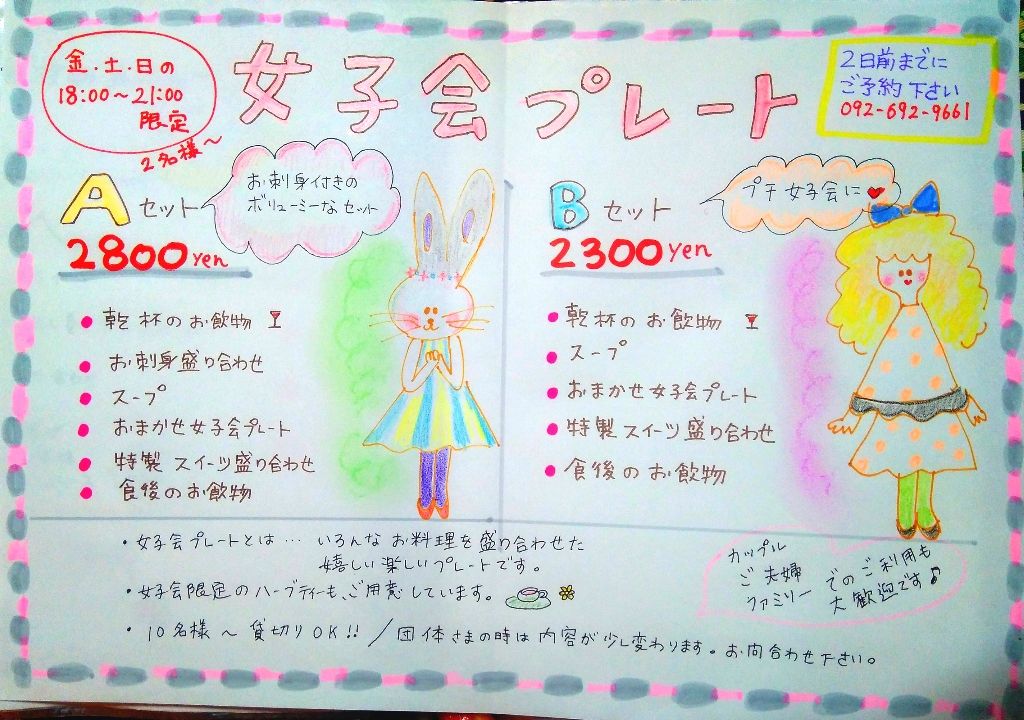 金・土・日の
18:00～21:00
限定
2名様～
女子会プレート
2日前までに
ご予約下さい
092-692-9661
Aセット
お刺身付きの
ボリューミーなセット
2800yen
乾杯のお飲物
お刺身盛り合わせ
スープ
おまかせ女子会プレート
特製スイーツ盛り合わせ
食後のお飲物
Bセット
プチ女子会に
2300yen
乾杯のお飲物
スープ
おまかせ女子会プレート
特製スイーツ盛り合わせ
食後のお飲物
・女子会プレートとは…いろんなお料理を盛り合わせた
嬉しい楽しいプレートです。
・女子会限定のハーブティーも、ご用意しています。
・10名様～貸切りOK!!／団体さまの時は内容が少し変わります。お問合わせ下さい。
カップル
ご夫婦
ファミリーでのご利用も
大歓迎です♪